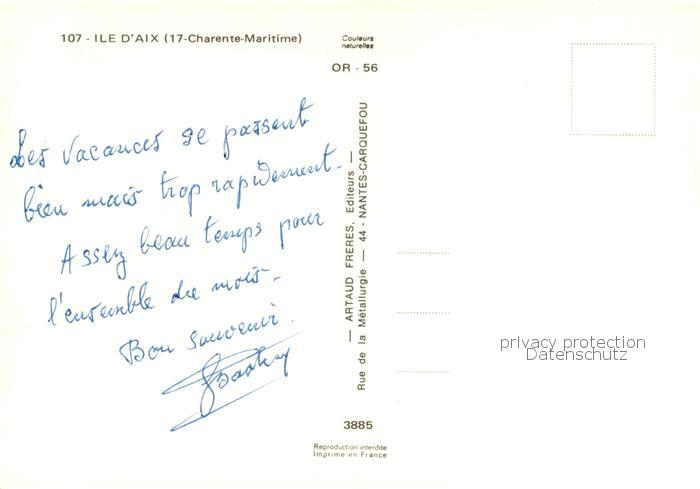 107 - ILE D'AIX (17-Charente-Maritime)
Couleurs
naturelles
OR - 56
Les vacances se passent
bien mais trop rapidement.
Assez beau temps pour
l'ensemble du mois.
Bon souvenir.
— ARTAUD FRERES, Editeurs —
Rue de la Métallurgie — 44 - NANTES-CARQUEFOU
privacy protection
Datenschutz
3885
Reproduction interdite
Imprimé en France